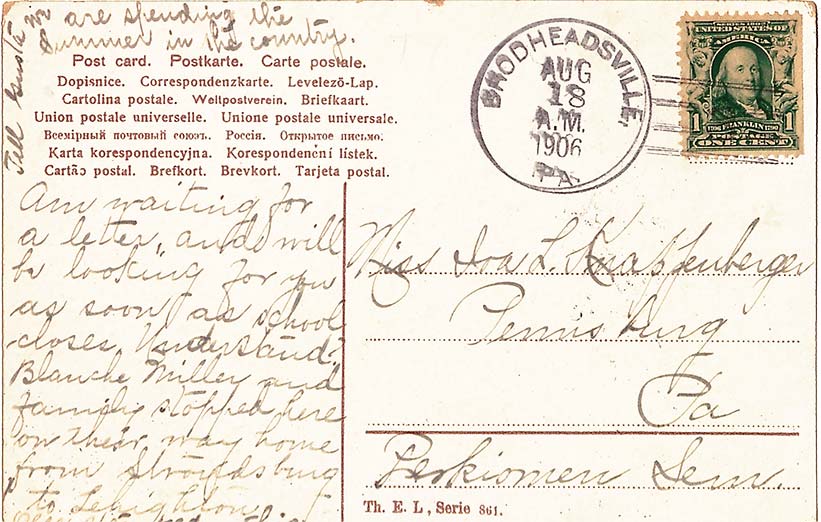 are spending the
Summer in the country.
Tell
Post card. Postkarte. Carte postale.
Dopisnice. Correspondenzkarte. Levelező-Lap.
Cartolina postale. Weltpostverein. Briefkaart.
Union postale universelle. Unione postale universale.
Всемірный почтовый союзъ. Россія. Открытое письмо.
Karta korespondencyjna. Korespondenční lístek.
Cartão postal. Brefkort. Brevkort. Tarjeta postal.
BRODHEADSVILLE,
AUG
18
A.M.
1906
PA.
SERIES 1902
UNITED STATES OF
AMERICA
1706 FRANKLIN 1790
1 POSTAGE 1
ONE CENT
Am waiting for
a letter, and will
be looking for you
as soon as school
closes. Understand?
Blanche Miller and
family stopped here
on their way home
from Stroudsburg
to Lehighton
Miss Iva L. Knappenberger
Pennsburg
Pa
Perkiomen Sem.
Th. E. L., Serie 861.